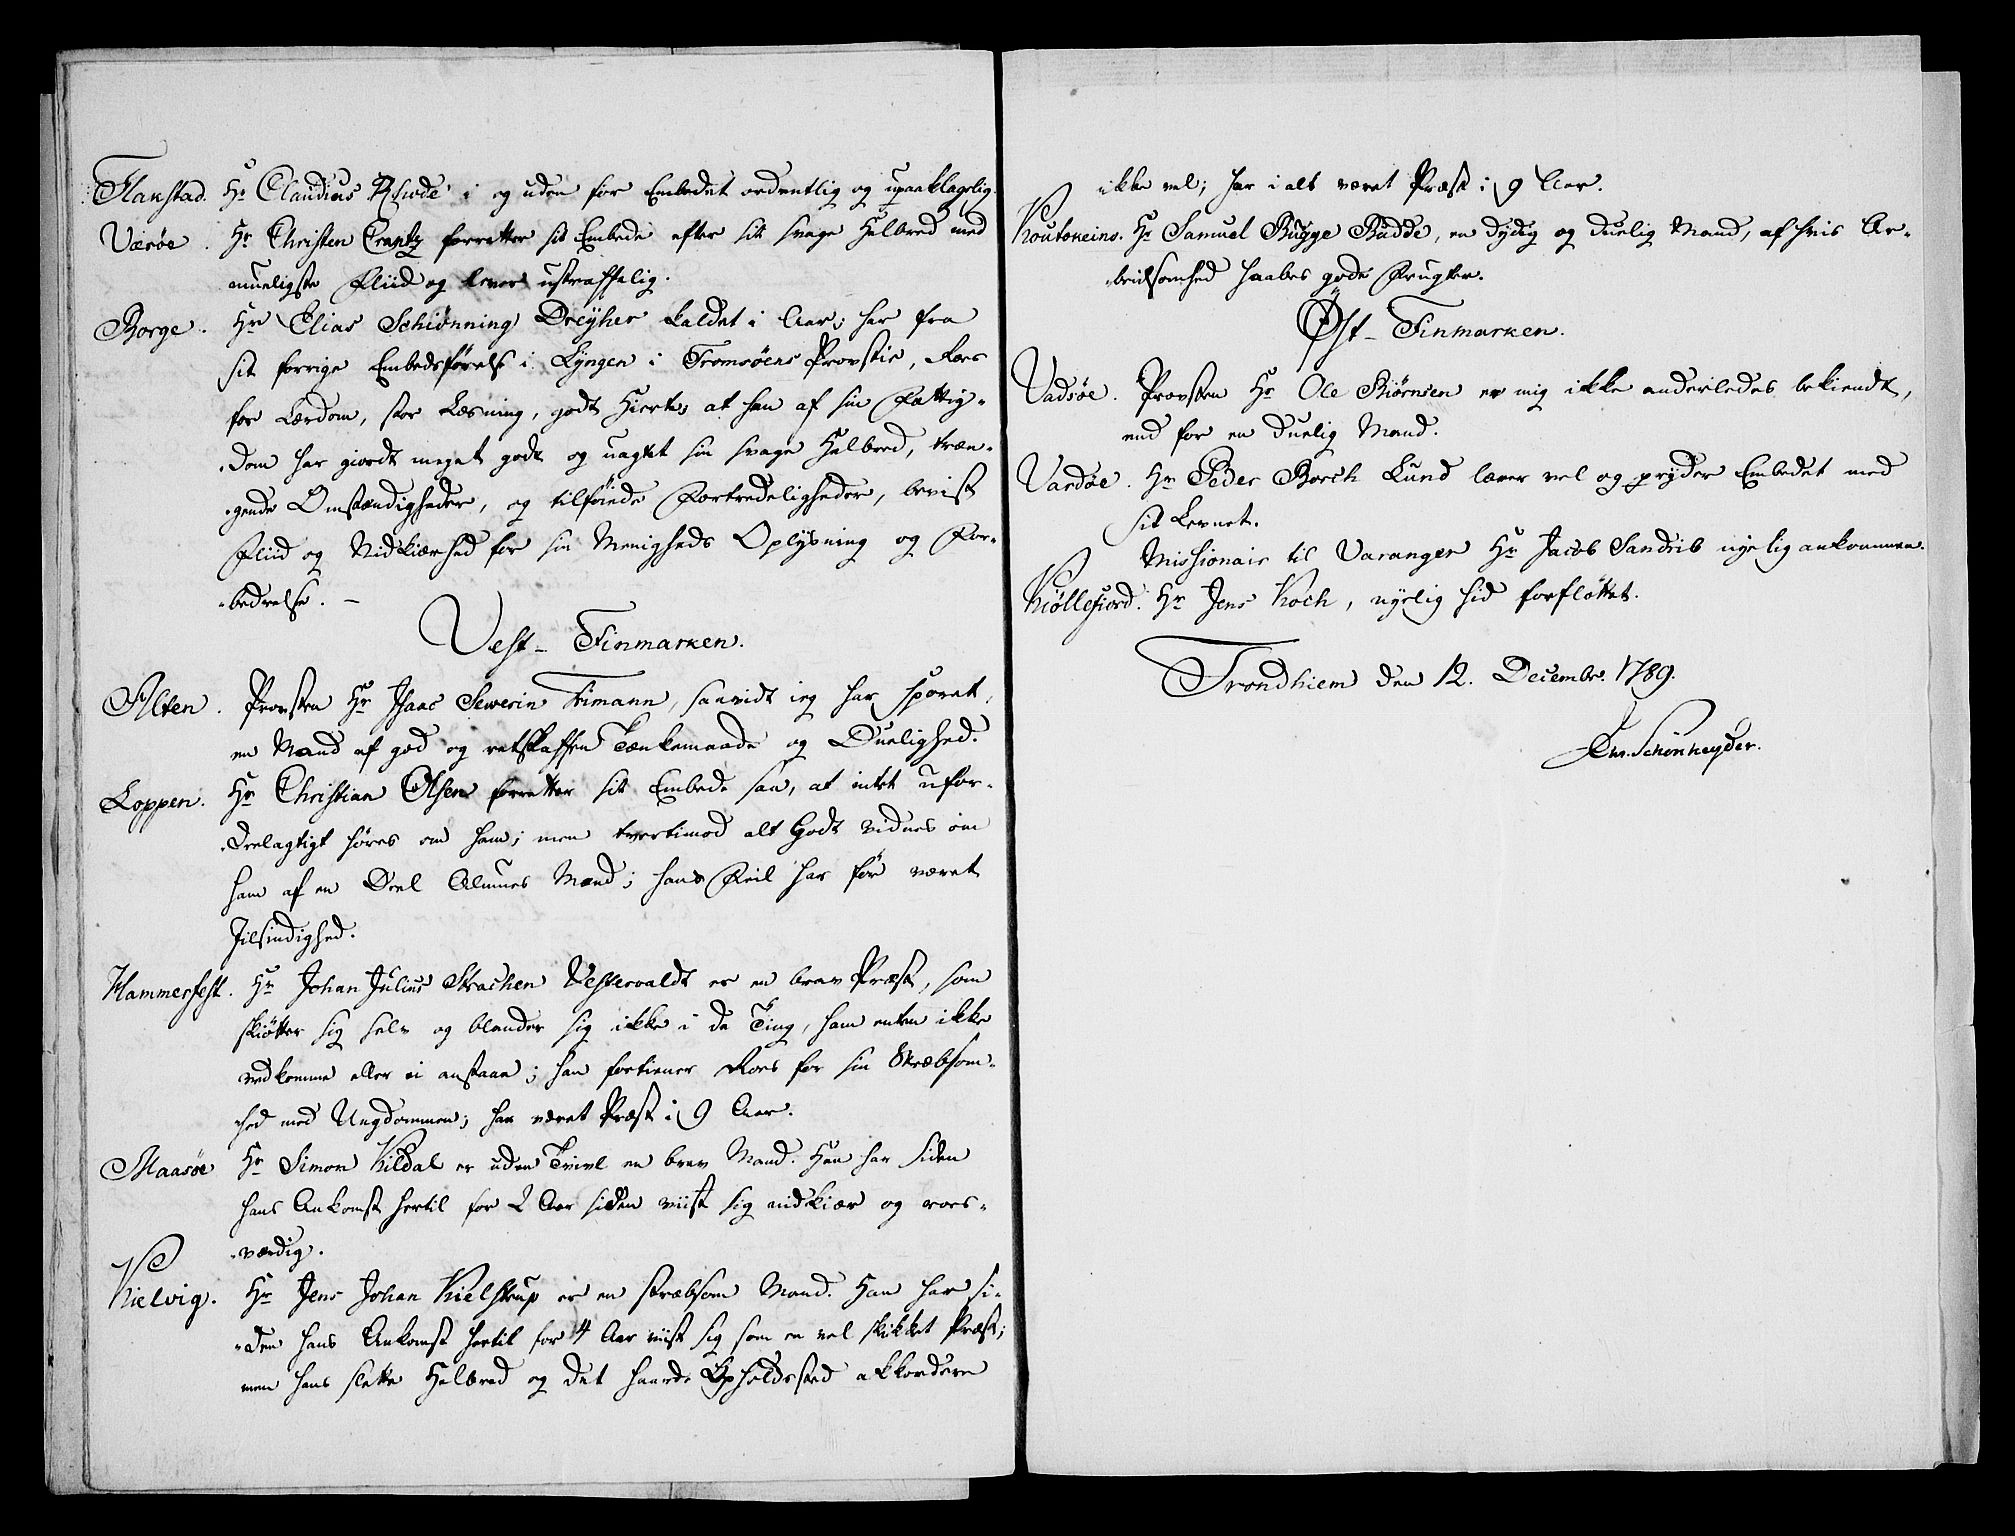 Flanstad. Hr Claudius Rhode i og uden for Embedet ordentlig og upaaklagelig.
Værøe. Hr Christen Crantz forretter sit Embede efter sit svage Helbred med
mueligste Fliid og lever ustraffelig.
Borge. Hr Elias Schiønning Dreyher kaldet i Aar; har fra
sit forrige Embedsførelse i Lyngen i Tromsöens Provstie, Roes
for Lærdom, stor Læsning, godt Hierte, at han af sin Fattig-
-dom har giordt meget godt og uagtet sin svage Helbred, træn-
-gende Omstændigheder, og tilföiede Fortredeligheder, beviist
Fliid og Nidkierhed for sin Menigheds Oplysning og For-
-bedrelse. —
Vest-Finmarken.
Alten. Provsten Hr Isaac Sewerin Fimann, saavidt ieg har sporet,
en Mand af god og retskaffen Tænkemaade og Duelighed.
Loppen. Hr Christian Olsen forretter sit Embede saa, at intet ufor-
-deelagtigt høres om ham; men tvertimod alt Godt vidnes om
ham af en Deel Almues Mænd; hans Feil har før været
Iilsindighed.
Hammerfest. Hr Johan Julius Strachen Vestervaldt er en brav Præst, som
skiøtter sig selv og blander sig ikke i de Ting, ham enten ikke
vedkomme eller ei anstaae; han fortiener Roes for sin Stræbsom-
-hed med Ungdommen; har været Præst i 9 Aar.
Maasøe Hr Simon Kildal er uden Tvivl en brav Mand. Han har siden
hans Ankomst hertil for 2 Aar siden viist sig nidkiær og roes-
-værdig.
Kielvig. Hr Jens Johan Kielstrup er en stræbsom Mand. Han har si-
-den hans Ankomst hertil for 4 Aar viist sig som en vel skikket Præst;
men hans slette Helbred og det haarde Opholdssted akkordere
ikke vel; har i alt været Præst i 9 Aar.
Koutokeino. Hr Samuel Bugge Budde, en dydig og duelig Mand, af hvis Ar-
-beidsomhed haabes gode Frugter.
Øst-Finmarken.
Vadsöe. Provsten Hr Ole Biørnsen er mig ikke anderledes bekiendt,
end for en duelig Mand.
Vardøe. Hr Peder Borch Lund lærer vel og pryder Embedet med
sit Levnet.
Missionair til Varanger Hr Jacob Sandrib nyelig ankommen.
Kiöllefiord. Hr Jens Koch, nyelig hid forfløttet.
Trondhiem den 12. Decembr. 1789.
Schönheyder.